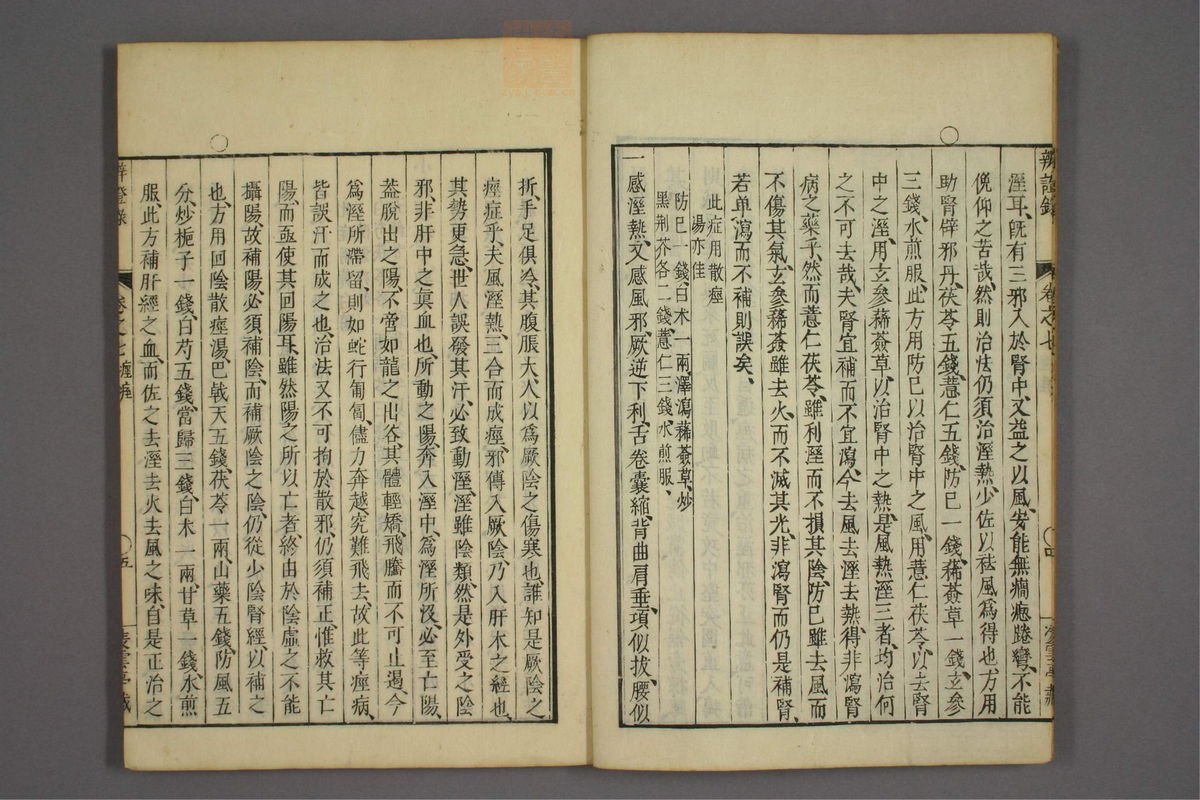 溼耳、旣有三邪入於腎中、又益之以風、安能無癎瘛踡攣、不能
俛仰之苦哉、然則治法仍須治溼熱、少佐以祛風爲得也、方用
助腎辟邪丹、茯苓五錢、薏仁五錢、防巳一錢、豨薟草一錢、玄參
三錢、水煎服、此方用防巳以治腎中之風、用薏仁茯苓、以去腎
中之溼、用玄參豨薟草、以治腎中之熱、是風熱溼三者、均治何
之不可去哉、夫腎宜補而不宜瀉、今去風去溼去熱、得非瀉腎
病之藥乎、然而薏仁茯苓、雖利溼而不損其陰、防巳雖去風而
不傷其氣、玄參豨薟雖去火、而不滅其光、非瀉腎而仍是補腎、
若单瀉而不補則誤矣、
此症用散痙
湯亦佳
防巳一錢、白术一兩、澤瀉豨薟草、炒
黑荆芥各二錢、薏仁三錢、水煎服、
一感溼熱、又感風邪、厥逆下利、舌卷囊縮、背曲肩垂、項似拔、腰似
辨證錄
卷之七
折、手足俱冷、其腹脹大、人以爲厥陰之傷寒也、誰知是厥陰之
痙症乎、夫風溼熱、三合而成痙、邪傳入厥陰、乃入肝木之經也、
其勢更急、世人誤發其汗、必致動溼、溼雖陰類、然是外受之陰
邪、非肝中之眞血也、所動之陽、奔入溼中、爲溼所沒、必至亡陽、
葢脫出之陽、不啻如龍之出谷、其體輕矯、飛騰而不可止遏、今
爲溼所滯留、則如蛇行匍匐、儘力奔越、究難飛去、故此等痙病、
皆誤汗而成之也、治法又不可拘於散邪、仍須補正、惟救其亡
陽、而亟使其回陽耳、雖然陽之所以亡者、終由於陰虛之不能
攝陽故補陽必須補陰、而補厥陰之陰、仍從少陰腎經、以補之
也、方用回陰散痙湯、巴戟天五錢、茯苓一兩、山藥五錢、防風五
分、炒梔子一錢、白芍五錢、當歸三錢、白术一兩、甘草一錢、水煎
服、此方補肝經之血、而佐之去溼去火去風之味、自是正治之
卷之七
五